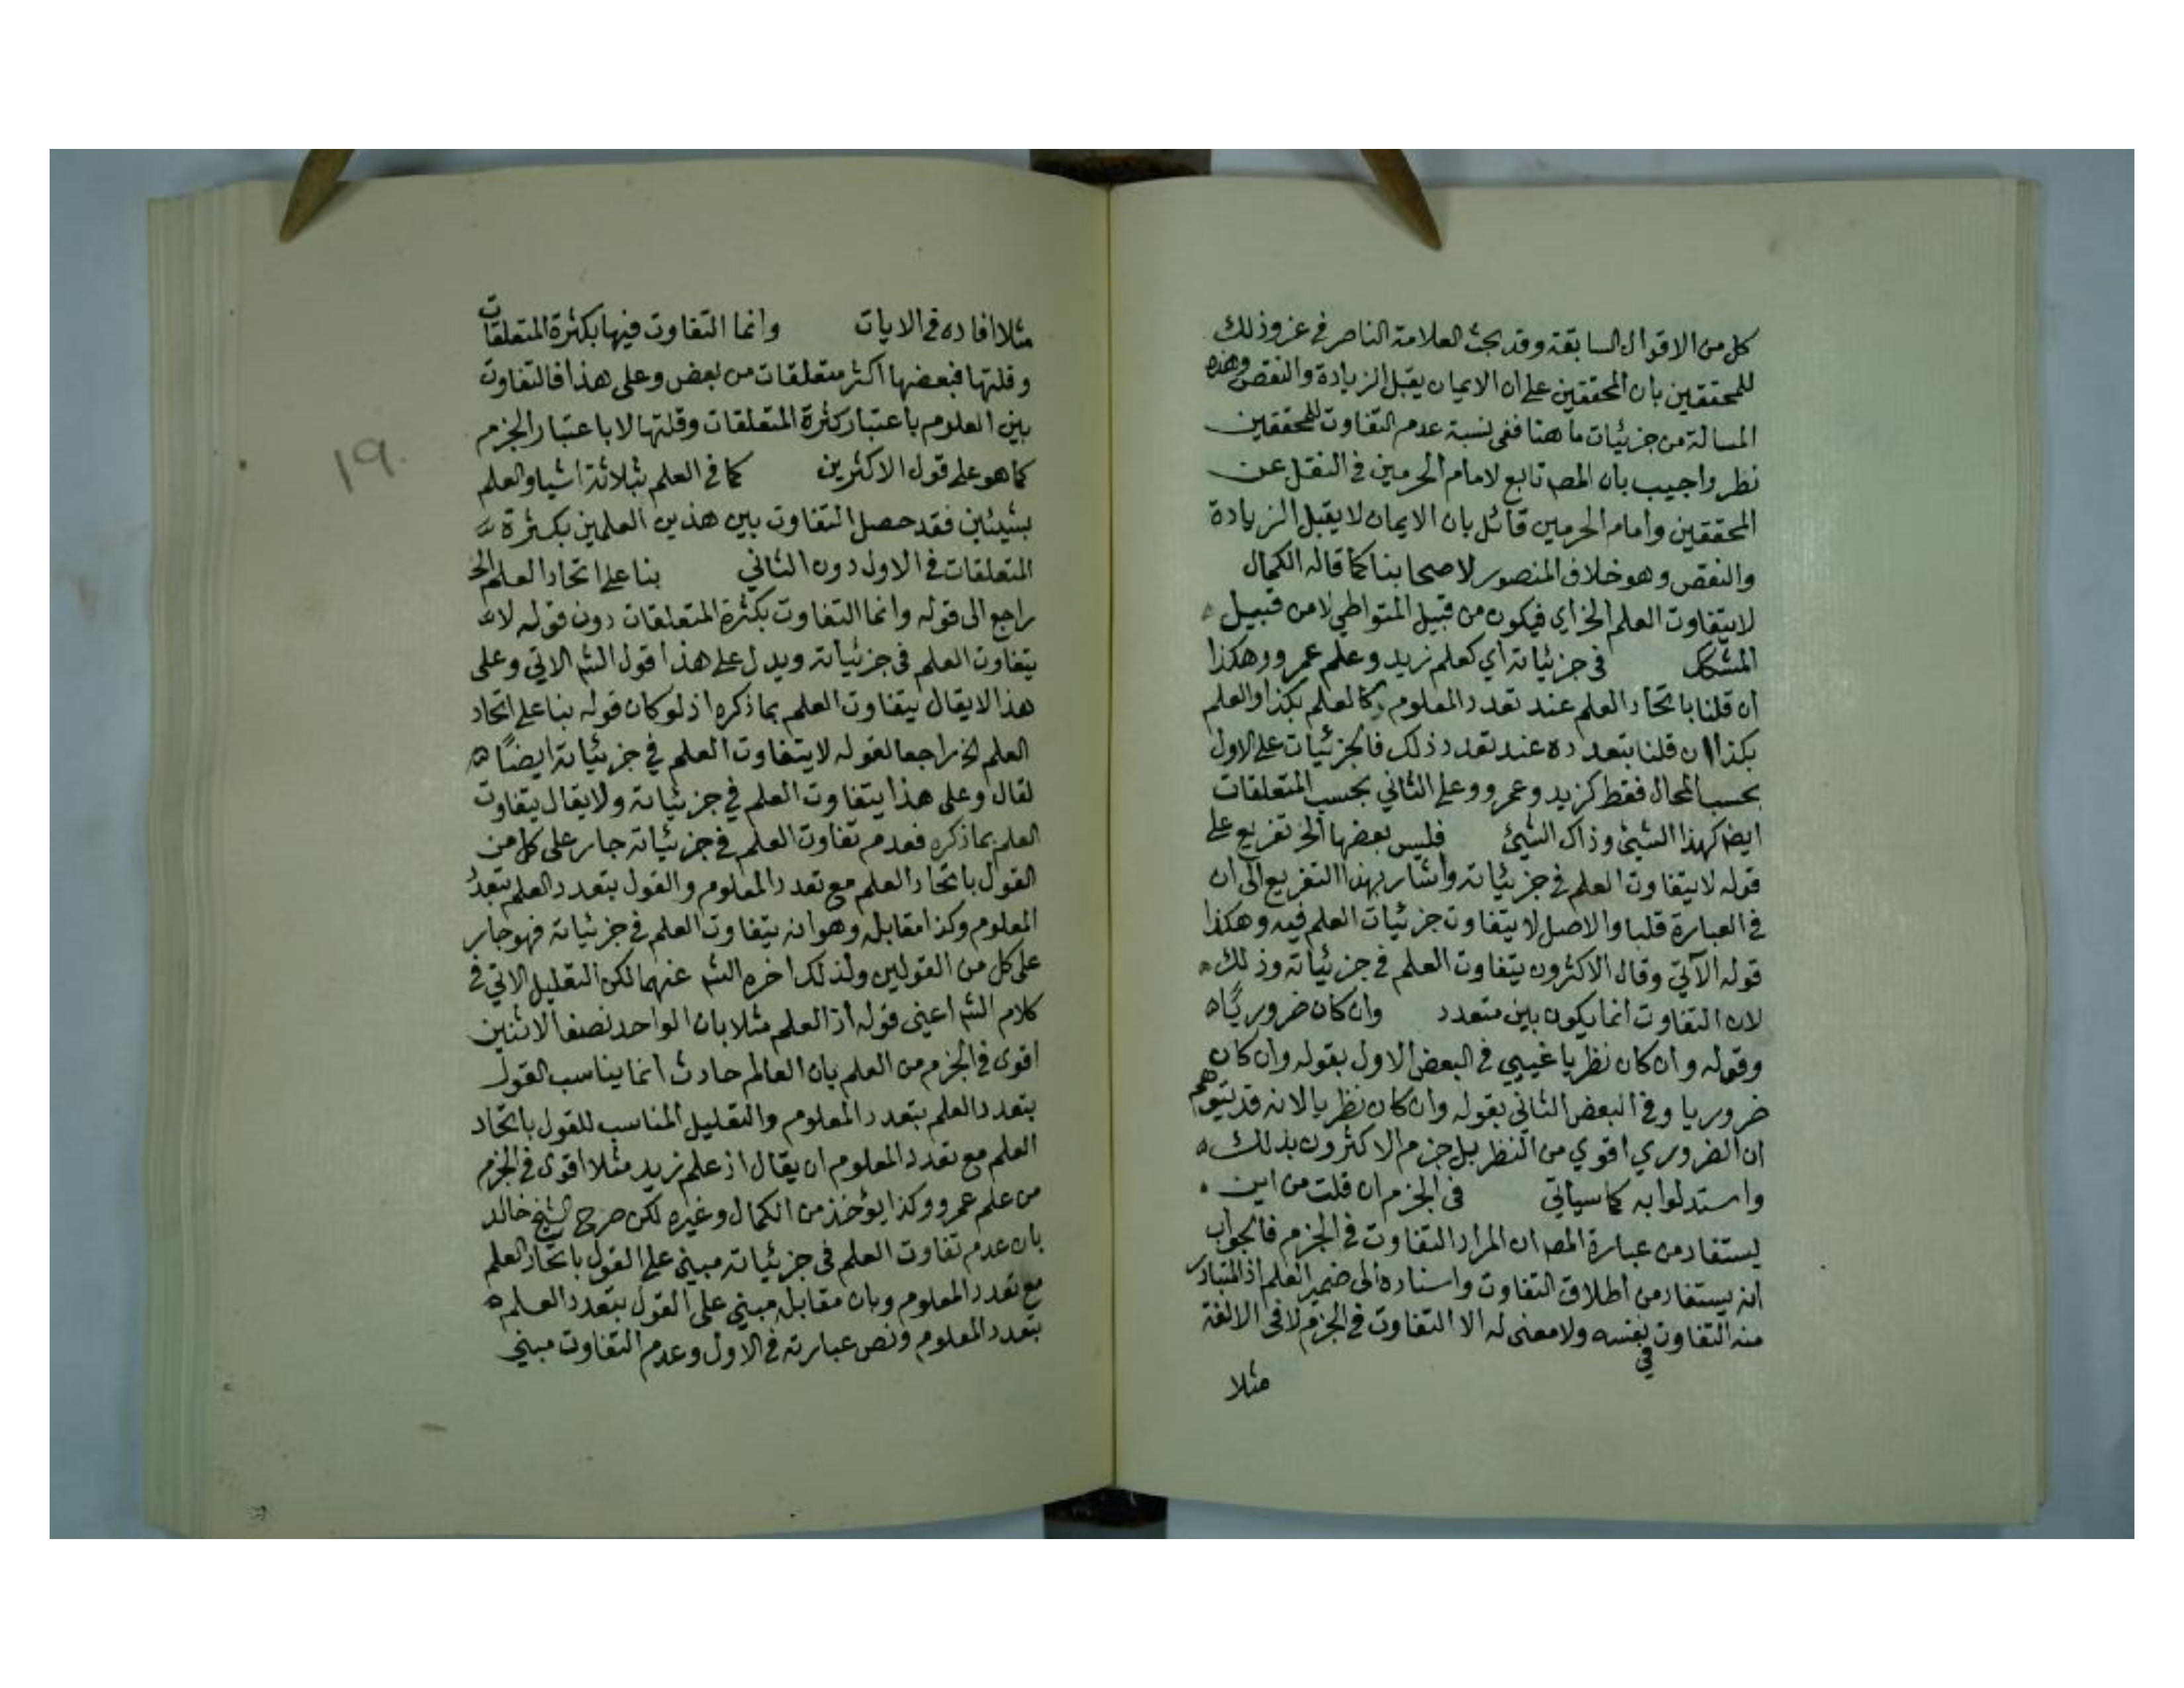 كل من الاقوال السابقة وقد بحث العلامة الناصر في عزو ذلك
للمحققين بان المحققين على ان الايمان يقبل الزيادة والنقص وهذه
المسالة من جزئيات ما هنا ففي نسبة عدم التفاوت للمحققين
نظر واجيب بان المصه تابع لامام الحرمين في النقل عن
المحققين وامام الحرمين قائل بان الايمان لا يقبل الزيادة
والنقص وهو خلاف المنصور لاصحابنا كما قاله الكمال
لا يتفاوت العلم الخ اي فيكون من قبيل المتواطي لا من قبيل
المشكك في جزئياته اي كعلم زيد وعلم عمرو وهكذا
ان قلنا باتحاد العلم عند تعدد المعلوم وكالعلم بكذا والعلم
بكذا ان قلنا بتعدده عند تعدد ذلك فالجزئيات على الاول
بحسب المحال فقط كزيد وعمرو وعلى الثاني بحسب المتعلقات
ايضه كهذا الشيئ وذاك الشيئ فليس بعضها الخ تفريع على
قوله لا يتفاوت العلم في جزئياته واشار بهذا التفريع الى ان
في العبارة قلبا والاصل لا يتفاوت جزئيات العلم فيه وهكذا
قوله الآتي وقال الاكثرون يتفاوت العلم في جزئياته وذلك
لان التفاوت انما يكون بين متعدد وان كان ضروريًا
وقوله وان كان نظريا غيبي في البعض الاول بقوله وان كان
ضروريا وفي البعض الثاني بقوله وان كان نظريا لانه قد يتوهم
ان الضروري اقوي من النظر بل جزم الاكثرون بذلك
واستدلوا به كما سياتي في الجزم ان قلت من اين
يستفاد من عبارة المصه ان المراد التفاوت في الجزم فالجواب
انه يستفاد من اطلاق التفاوت واسناده الى ضمير العلم اذ المتبادر
منه التفاوت في نفسه ولا معنى له الا التفاوت في الجزم لا في الالفة
مثلا
مثلا افاده في الايات وانما التفاوت فيها بكثرة المتعلقات
وقلتها فبعضها اكثر متعلقات من بعض وعلى هذا فالتفاوت
بين العلوم باعتبار كثرة المتعلقات وقلتها لا باعتبار الجزم
كما هو على قول الاكثرين كما في العلم بثلاثة اشيا والعلم
بشيئين فقد حصل التفاوت بين هذين العلمين بكثرة
المتعلقات في الاول دون الثاني بنا على اتحاد العلم الخ
راجع الى قوله وانما التفاوت بكثرة المتعلقات دون قوله لا
يتفاوت العلم في جزئياته ويدل على هذا قول الشه الاتي وعلى
هذا لا يقال يتفاوت العلم بما ذكره اذ لو كان قوله بنا على اتحاد
العلم الخ راجعا لقوله لا يتفاوت العلم في جزئياته ايضًا
لقال وعلى هذا يتفاوت العلم في جزئياته ولا يقال يتفاوت
العلم بما ذكره فعدم تفاوت العلم في جزئياته جار على كل من
القول باتحاد العلم مع تعدد المعلوم والقول بتعدد العلم بتعدد
المعلوم وكذا مقابله وهو انه يتفاوت العلم في جزئياته فهو جار
على كل من القولين ولذلك اخره الشه عنهما لكن التعليل الاتي في
كلام الشه اعني قوله اذ العلم مثلا بان الواحد نصف الاثنين
اقوى في الجزم من العلم بان العالم حادث انما يناسب القول
بتعدد العلم بتعدد المعلوم والتعليل المناسب للقول باتحاد
العلم مع تعدد المعلوم ان يقال اذ علم زيد مثلا اقوى في الجزم
من علم عمرو وكذا يؤخذ من الكمال وغيره لكن صرح الشيخ خالد
بان عدم تفاوت العلم في جزئياته مبني على القول باتحاد العلم
مع تعدد المعلوم وبان مقابله مبني على القول بتعدد العلم
بتعدد المعلوم ونص عبارته في الاول وعدم التفاوت مبني
١٩٠